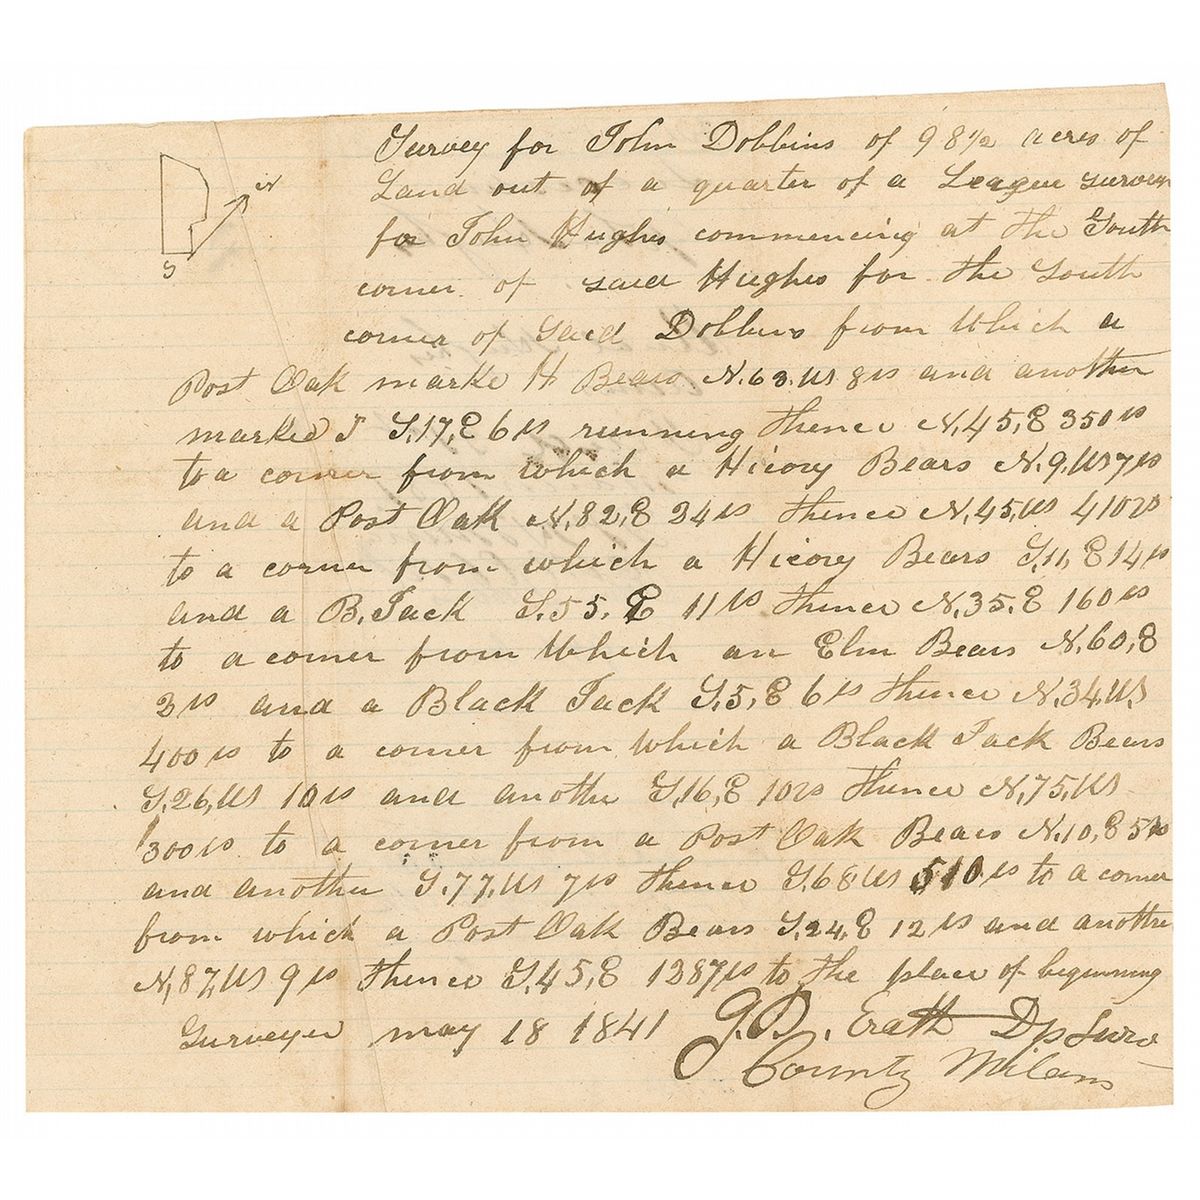 N
S
Survey for John Dobbins of 98 1/2 acres of
Land out of a quarter of a League survey
for John Hughs commencing at the South
corner of said Hughes for the South
corner of Said Dobbins from Which a
Post Oak marke H Bears N.63.W 8 vs and another
marked J S,17,E 6 vs running thence N,45,E 350 vs
to a corner from which a Hicory Bears N.9,W 7 vs
and a Post Oak N,82,E 24 vs thence N,45,W 410 vs
to a corner from which a Hicory Bears S,11,E 14 vs
and a B.Jack S.55.E 11 vs thence N,35.E 160 vs
to a corner from Which an Elm Bears N,60,E
3 vs and a Black Jack S,5,E 6 vs thence N,34,W,
400 vs to a corner from which a Black Jack Bears
S,26,W 10 vs and another S,16,E 10 vs thence N,75,W
300 vs to a corner from a Post Oak Bears N.10,E 5 vs
and another S.77,W 7 vs thence S,68 W 510 vs to a corner
from which a Post Oak Bears S,24,E 12 vs and another
N,87,W 9 vs thence S,45,E 1387 vs to the place of beginning
Surveyed may 18 1841 G.B. Erath Dp Surv
County Milam